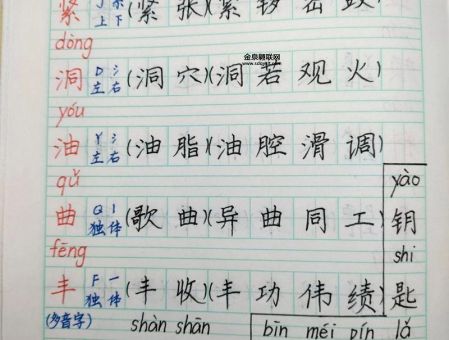 紧 上下 (紧张)(紧锣密鼓)
金泉翻联网
dòng
洞 D 氵 左右 (洞穴)(洞若观火)
yóu
油 Y 氵 左右 (油脂)(油腔滑调)
qǔ
曲 Q 丨 独体 (歌曲)(异曲同工)
fēng
丰 F 一 独体 (丰收)(丰功伟绩)
yào
钥
shi
匙
(多音字) shàn shān
bīn méi pín là